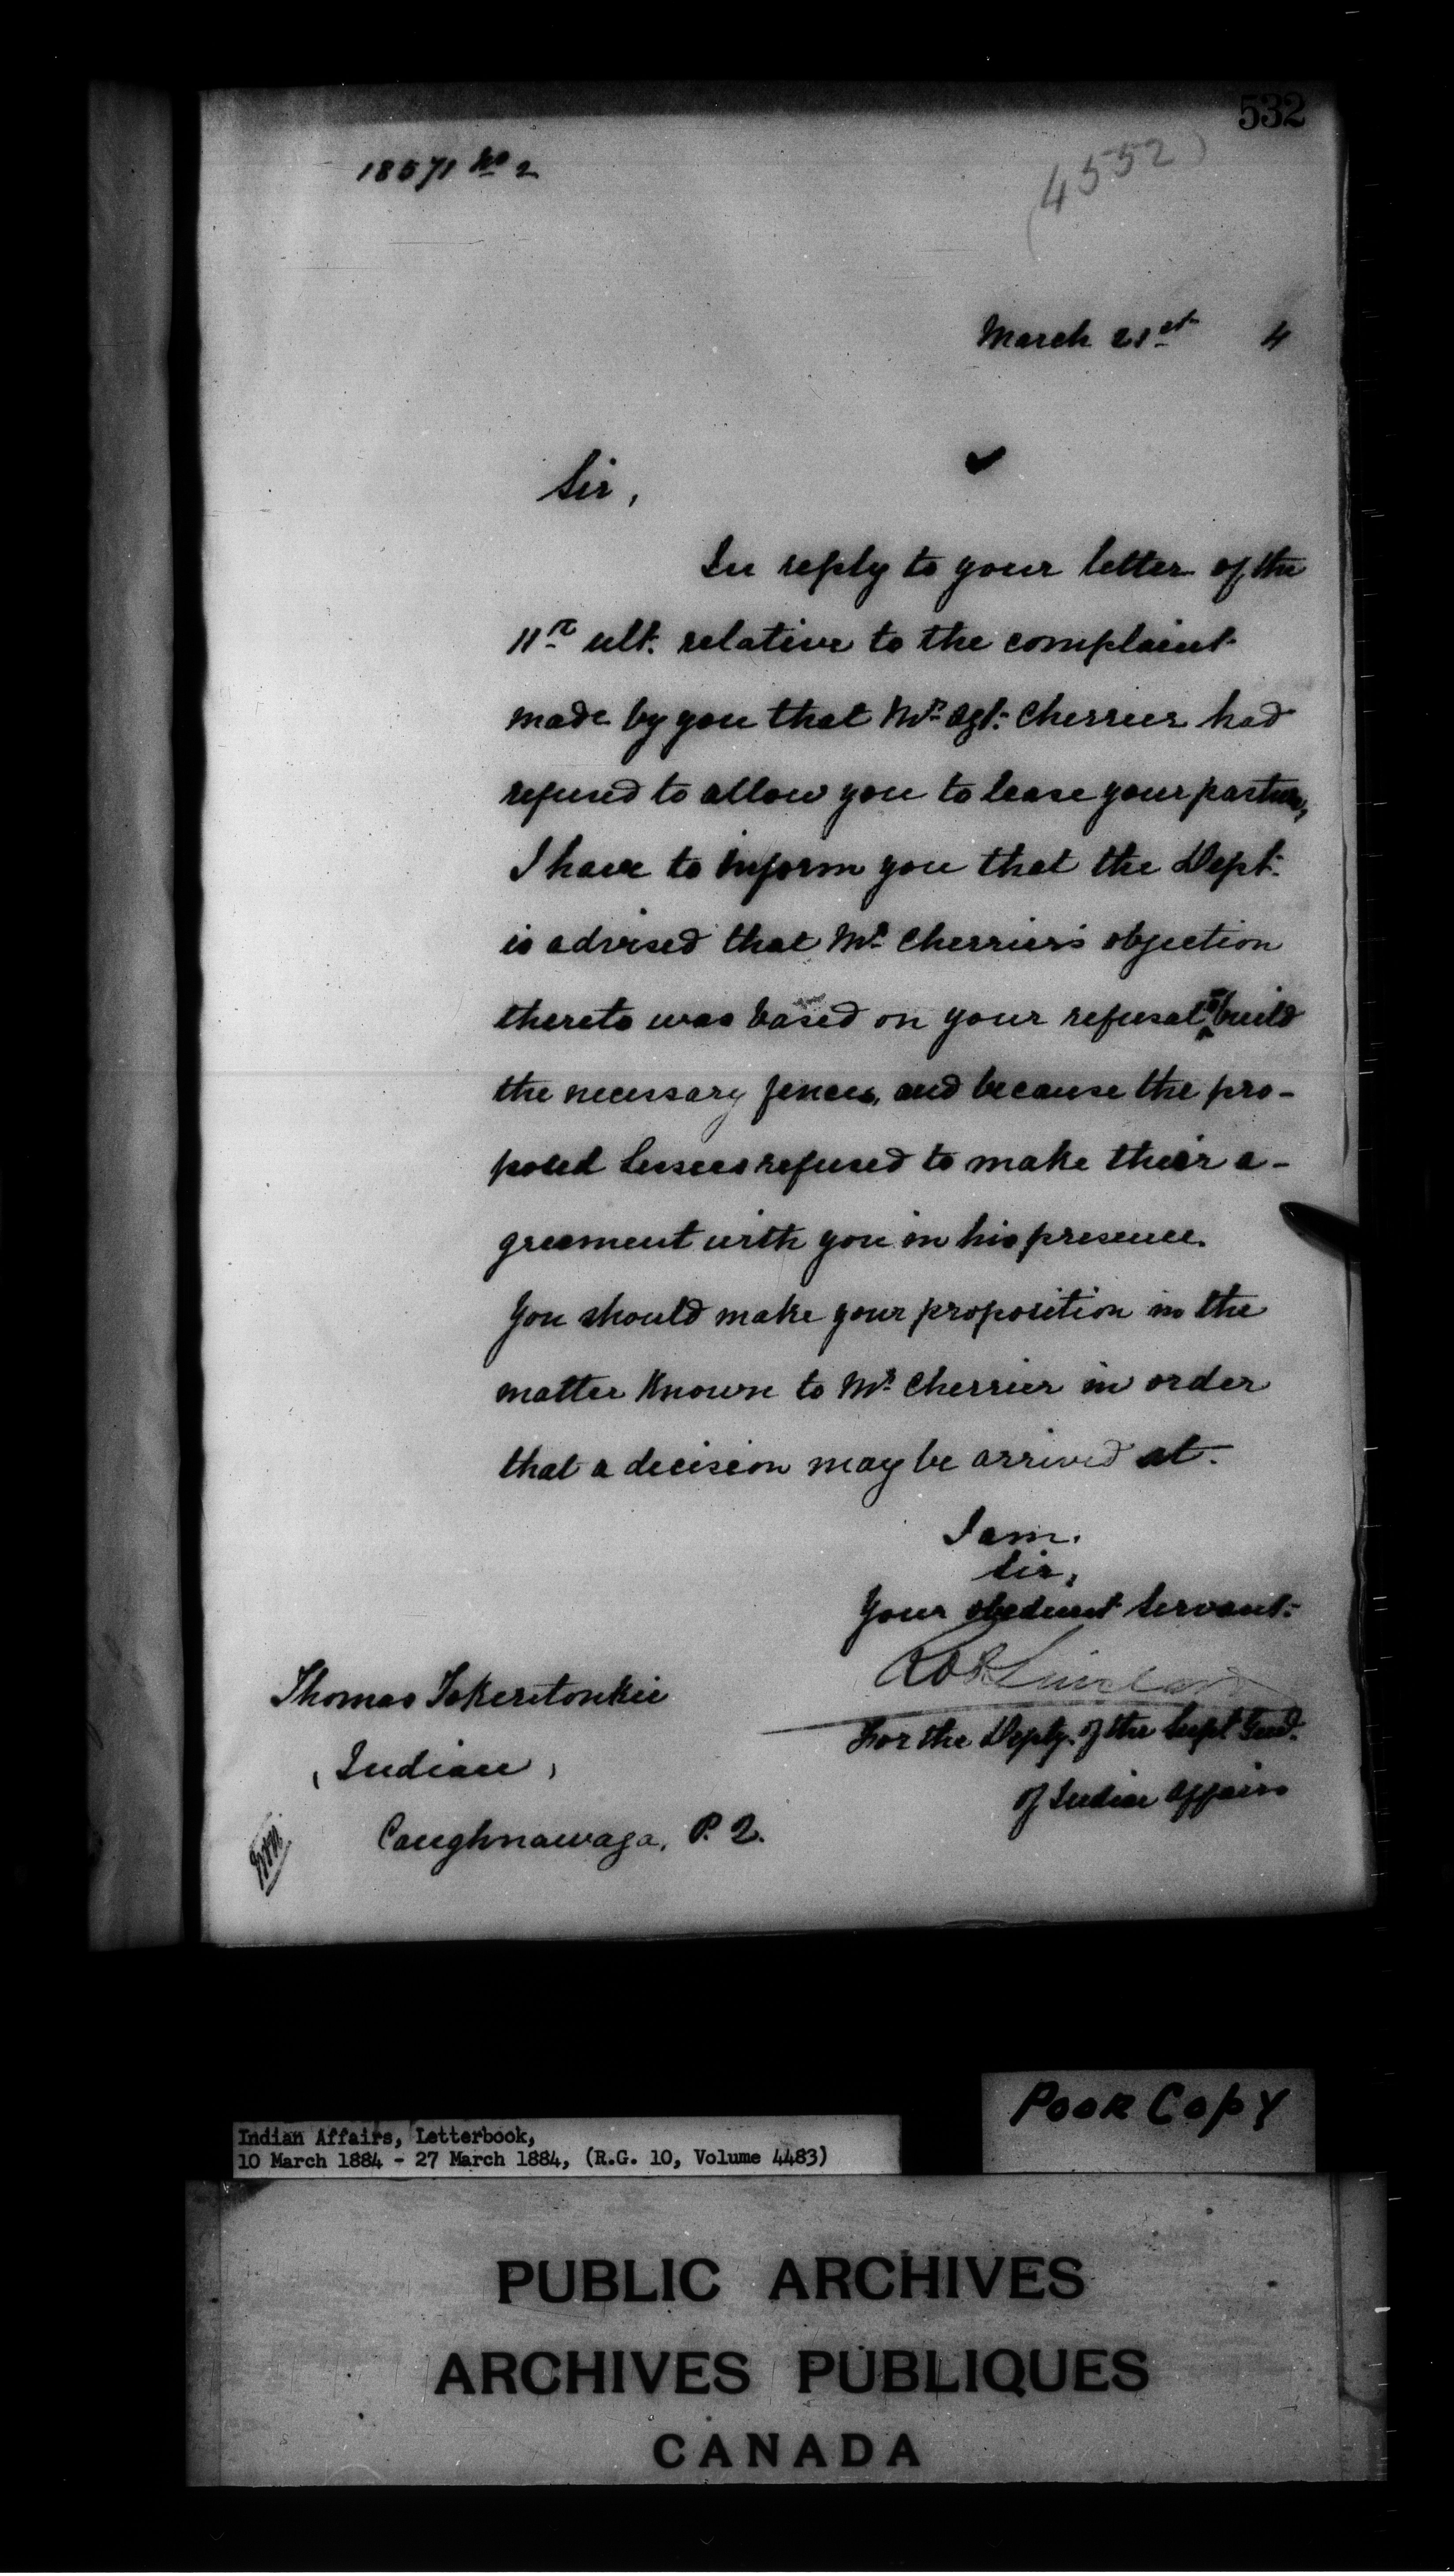 532
18571 No 2
(4552)
March 21st 4
Sir,
In reply to your letter of the
11th ult. relative to the complaint
made by you that Mr. Agt. Cherrier had
refused to allow you to lease your pasture,
I have to inform you that the Dept.
is advised that Mr. Cherrier's objection
thereto was based on your refusal to build
the necessary fences, and because the pro-
posed Lessees refused to make their a-
greement with you in his presence.
You should make your proposition in the
matter known to Mr. Cherrier in order
that a decision may be arrived at.
I am.
Sir,
Your obedient Servant.
Sinclair
For the Depty. of the Supt Genl.
of Indian Affairs
Thomas
(Indian,
Caughnawaga, P. Q.
Poor Copy
Indian Affairs, Letterbook,
10 March 1884 - 27 March 1884, (R.G. 10, Volume 4483)
PUBLIC ARCHIVES
ARCHIVES PUBLIQUES
CANADA